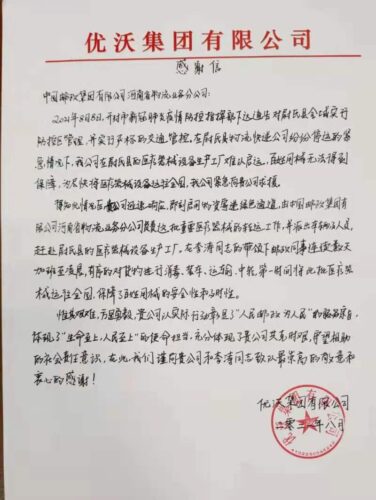 优沃集团有限公司
感谢信
中国邮政集团有限公司河南省物流业务分公司:
2021年8月8日,开封市新冠肺炎疫情防控指挥部下达通告对尉氏县全域实行
防控区管理,并实行严格的交通管控。在尉氏县物流快递公司纷纷停运的紧
急情况下,我公司在尉氏县医疗器械设备生产工厂难以启运,百姓用械无法得到
保障,为尽快将医疗器械设备运往全国,我公司紧急向贵公司求援。
得知此情况后贵公司迅速响应,即刻启用防疫物资绿色通道,由中国邮政集团有
限公司河南省物流业务分公司负责这批重要医疗器械的转运工作,并派出车辆及人员,
赶赴尉氏县的医疗器械设备生产工厂。在李涛同志的带领下邮政同事连续数天
加班至凌晨,有序的对货物进行消毒、装车、运输、中转,第一时间将此批医疗器
械运往全国,保障了百姓用械的安全性和及时性。
惟其艰难,方显勇毅,贵公司以实际行动彰显了“人民邮政为人民”的
体现了“生命至上,人民至上”的使命担当,充分体现了贵公司共克时艰、守望相助
的社会责任意识。在此,我们谨向贵公司和李涛同志致以最崇高的敬意和
衷心的感谢!
优沃集团有限公司
二零二一年八月